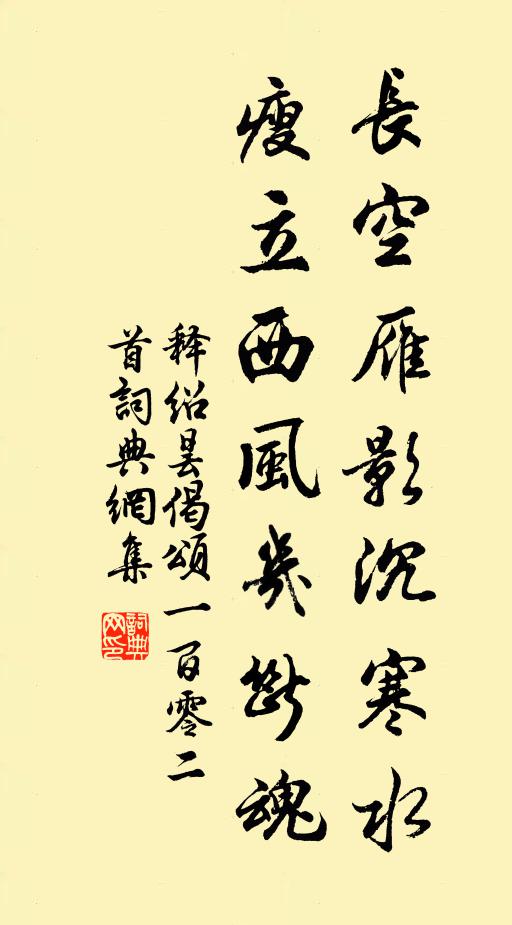 長空雁影沉寒水
瘦立西風幾斷魂
释绍昙偈頌一百零二
首詞典網集
詞典网印